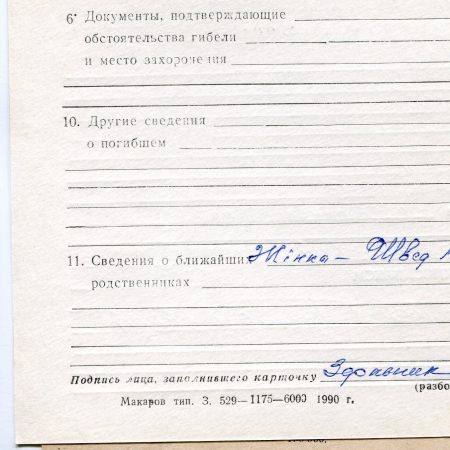 6· Документы, подтверждающие
обстоятельства гибели
и место захоронения
10. Другие сведения
о погибшем
11. Сведения о ближайших Жінка – Швед
родственниках
Подпись лица, заполнившего карточку Здравник
(разбо
Макаров тип. З. 529—1175—6000 1990 г.